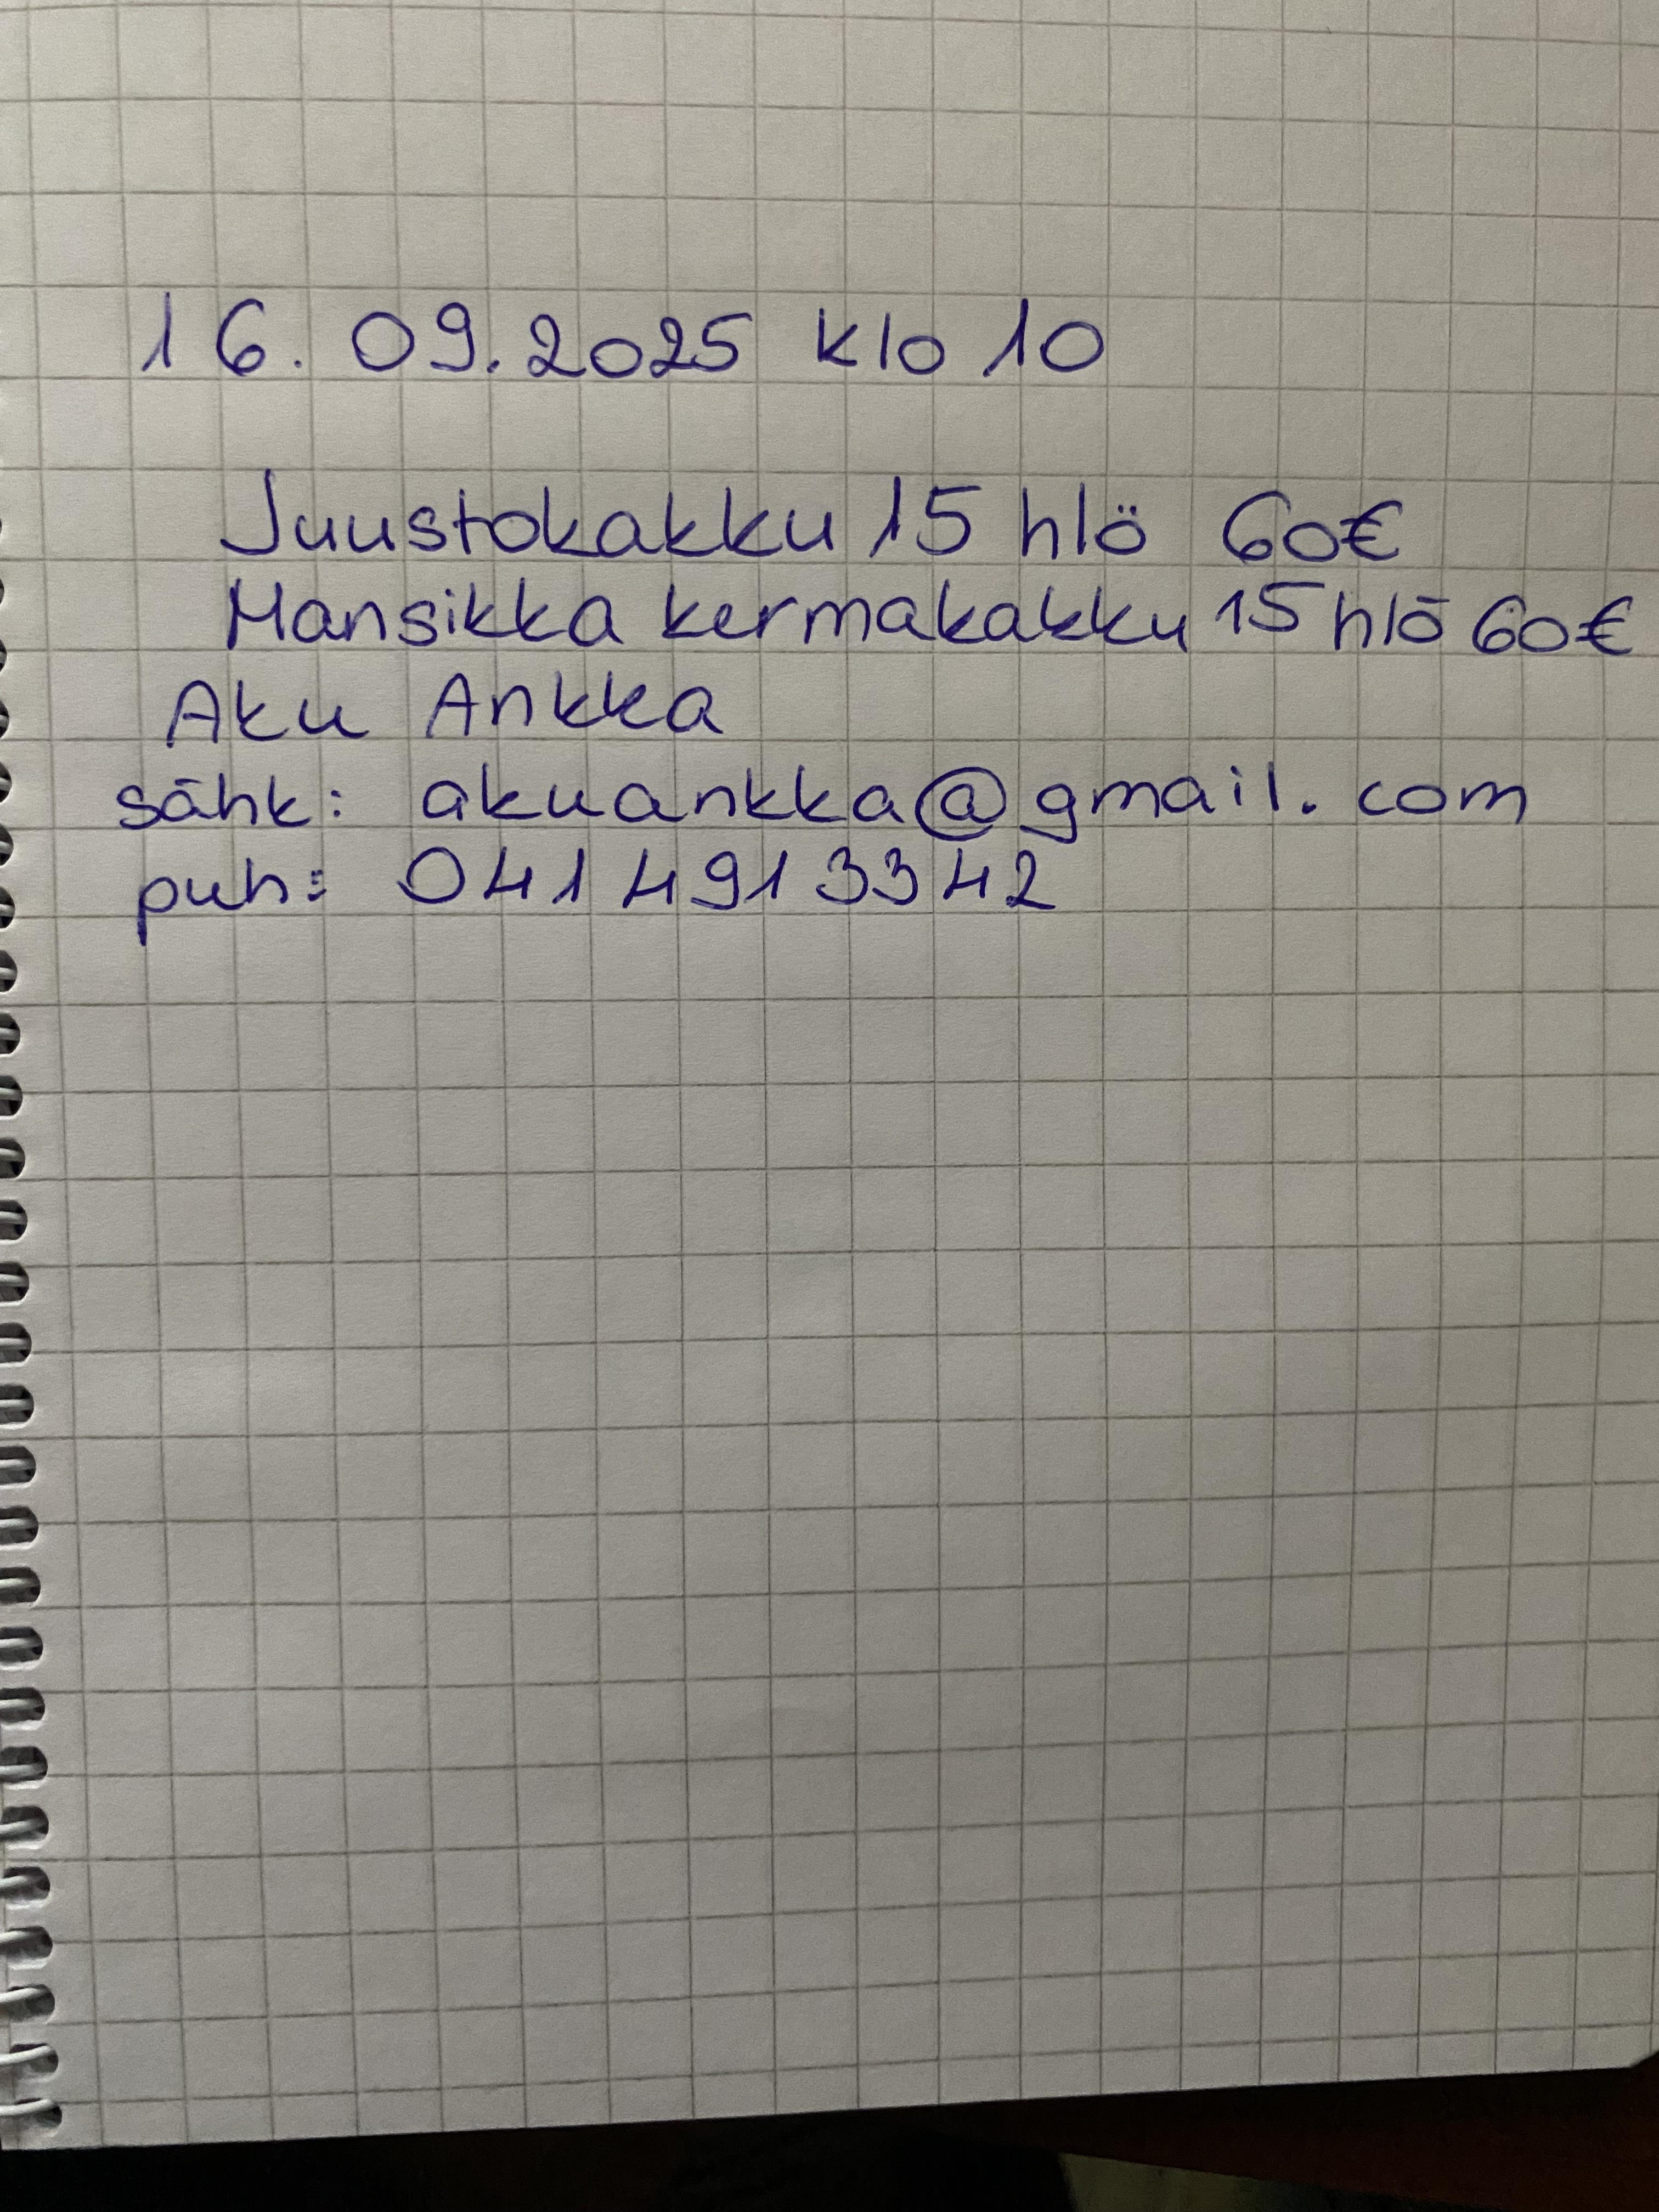 16.09.2025 klo 10
Juustokakku 15 hlö 60€
Mansikka kermakakku 15 hlö 60€
Aku Ankka
sähk: akuankka@gmail.com
puh: 041 4913342